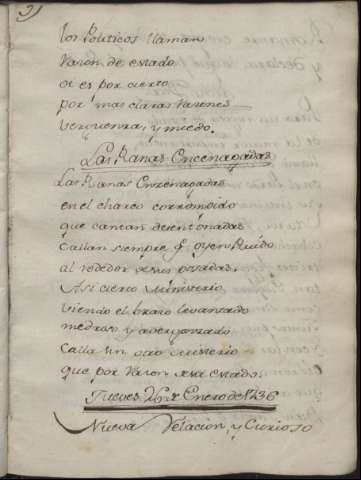 los Politicos llaman
Razon de estado
ot es por cierto
por mas claras razones
verguenza, y miedo.
Las Ranas Encenagadas
Las Ranas Enzenagadas
en el charco corrompido
que cantan desentonadas
Callan siempre q oyen Ruido
al rededor de sus posadas.
Asi cierto Ministerio
viendo el brazo levantado
medroso y avergonzado
Calla un otro
que por Razon de su estado.
Jueves 26 de Enero de 1736
Nueva Relacion, y Curioso